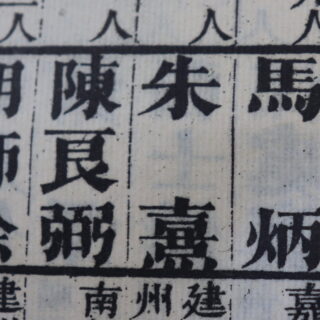 馬炳
朱熹
陳良弼
人
人
人
人
嘉
建
州
南
建